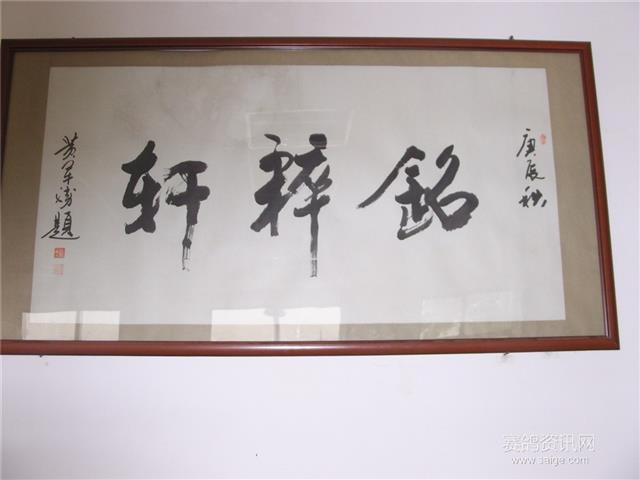 庚辰秋
銘粹軒
題
赛鸽资讯网
www.saige.com